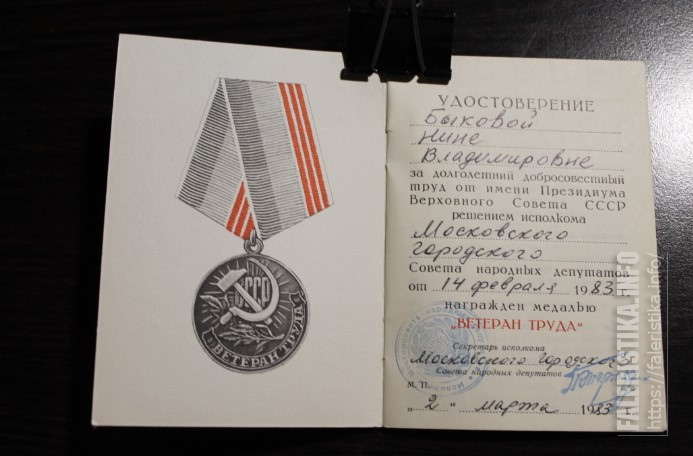 СССР
ВЕТЕРАН ТРУДА
УДОСТОВЕРЕНИЕ
Быковой
Нине
Владимировне
за долголетний добросовестный
труд от имени Президиума
Верховного Совета СССР
решением исполкома
Московского
городского
Совета народных депутатов
от "14 февраля 1983 г.
награжден медалью
"ВЕТЕРАН ТРУДА"
Секретарь исполкома
Московского Городского
Совета народных депутатов
М. П.
"2" марта 1983 г.
FALERISTIKA.INFO
https://faleristika.info/